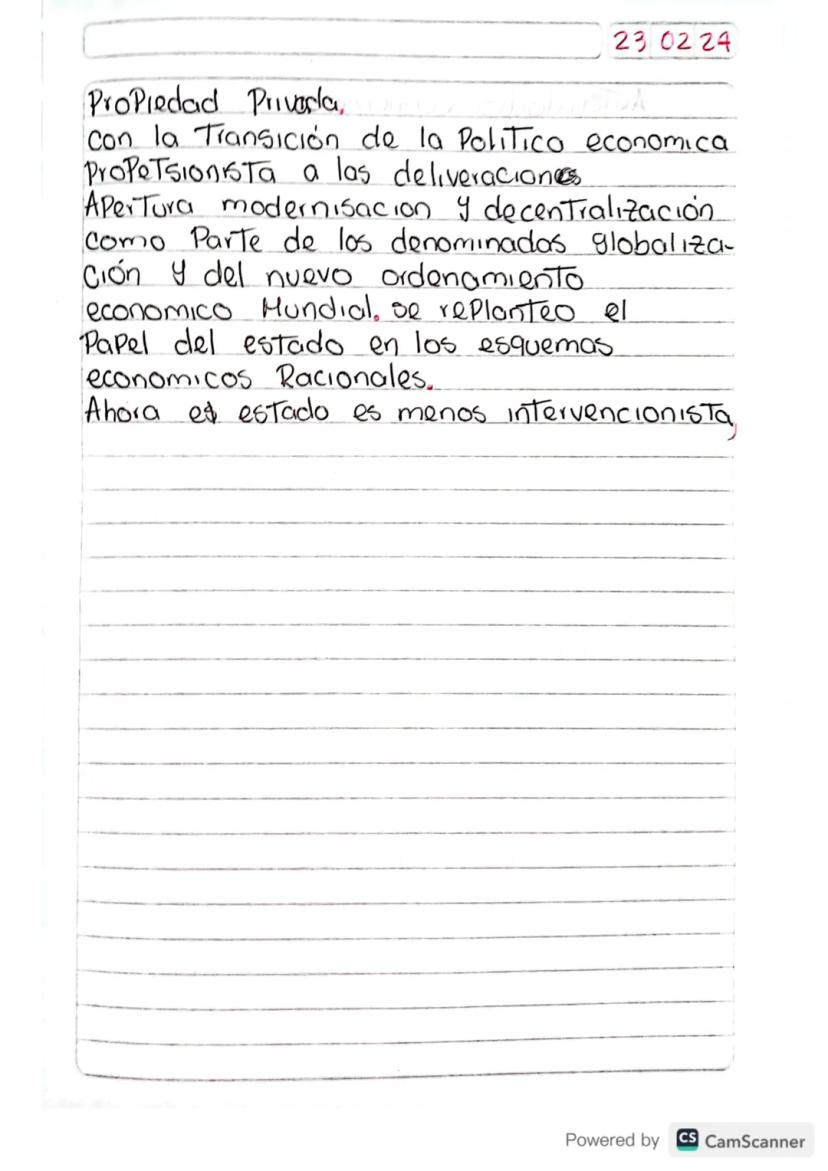 23 02 24
Propiedad Privada.
con la Transición de la Politico economica
Propetsionista a las deliveraciones
Apertura modernisacion y decentralización
como Parte de los denominados globaliza-
ción y del nuevo ordenamiento
economico Mundial. se replanteo el
Papel del estado en los esquemas
economicos Racionales.
Ahora el estado es menos intervencionista,
Powered by CS CamScanner